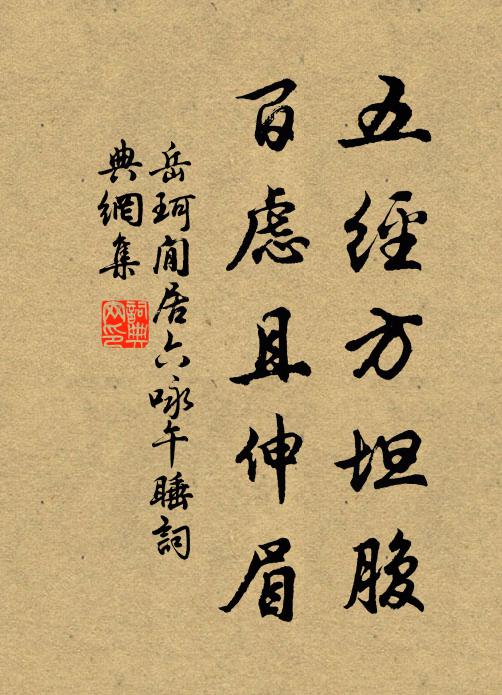 五經方坦腹
百慮且伸眉
岳珂閒居六咏午睡詞
典網集
詞典
网印